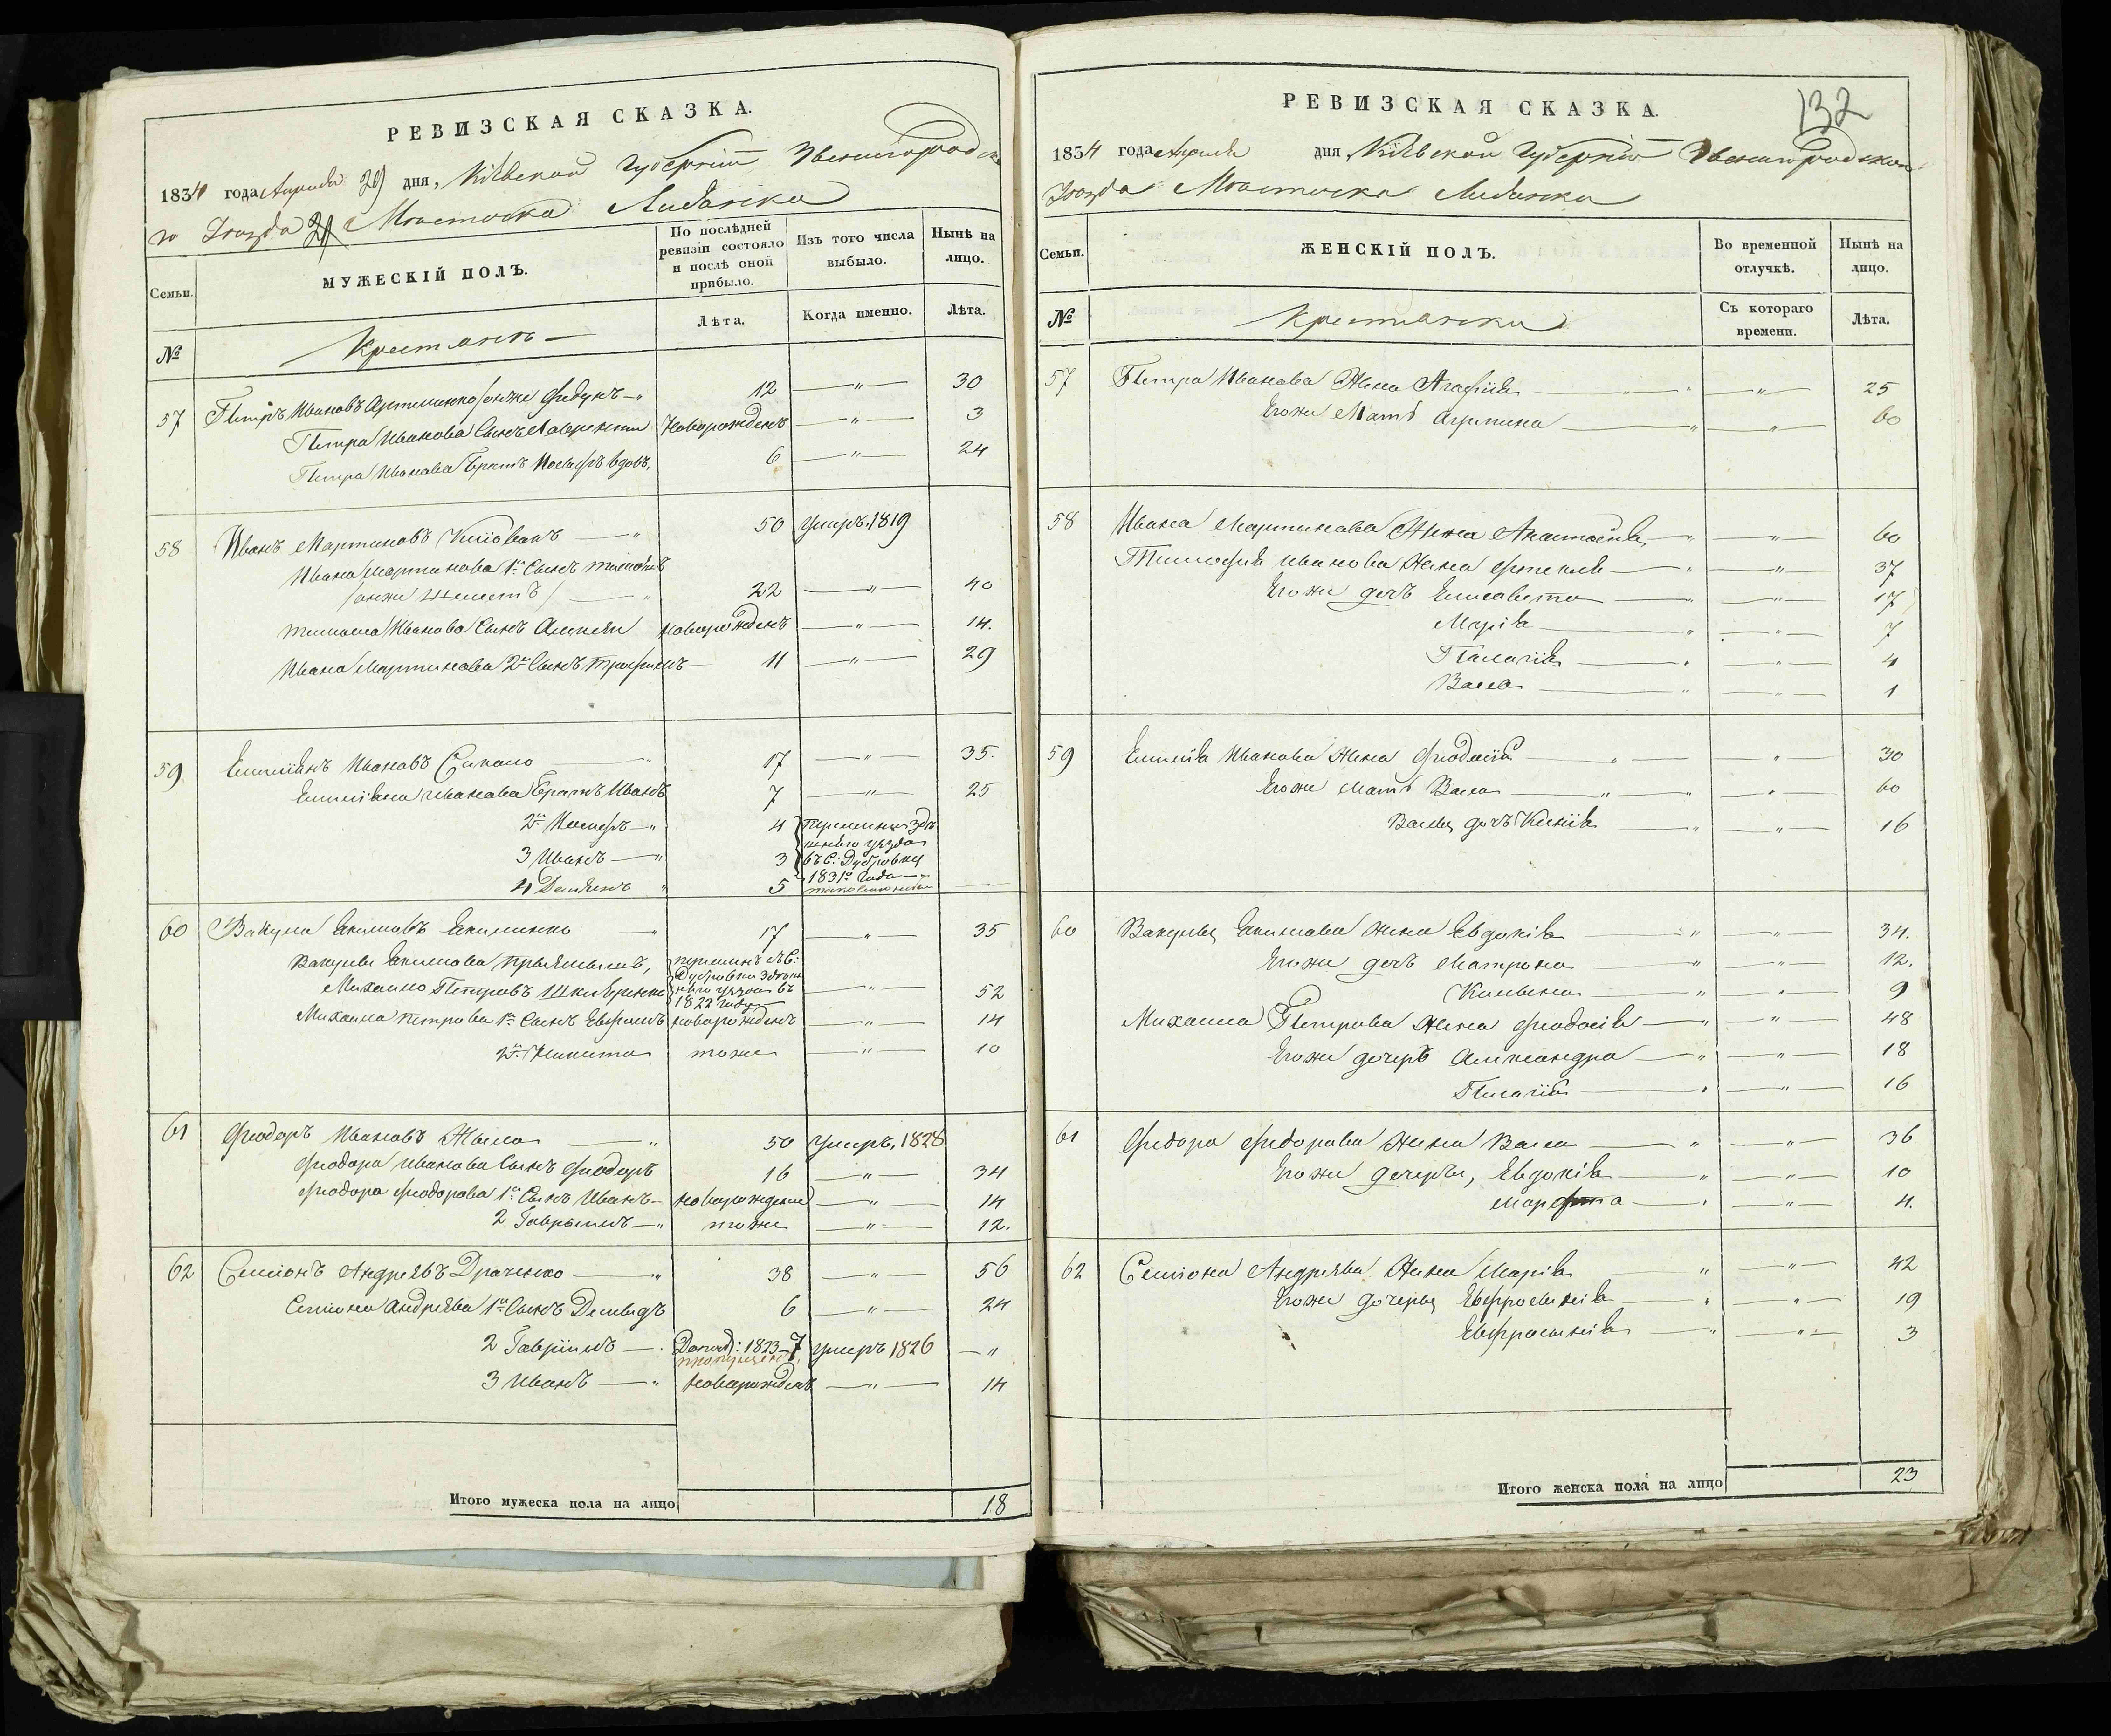 РЕВИЗСКАЯ СКАЗКА.
1834 года Априля дня, Кіевской Губерніи Звенигородска
го Уезда Местечка Лисянка
Семьи.
МУЖЕСКІЙ ПОЛЪ.
По послѣдней ревизіи состояло и послѣ оной прибыло.
Изъ того числа выбыло.
Нынѣ на лицо.
№
Крестьянъ
Лѣта.
Когда именно.
Лѣта.
57 Петръ Ивановъ онже Федунъ 12 — 30
Петра Иванова Сынъ Лаврентій Новорожденъ — 3
Петра Иванова Братъ Иосифъ вдовъ, 6 — 24
58 Иванъ Мартиновъ 50 умеръ 1819
Ивана Мартинова 1й Сынъ Тимофей
/онже / 22 — 40
Иванова Сынъ Алексѣй новорожденъ — 14.
Ивана Мартинова 2й Сынъ Трофимъ 11 — 29
59 Емиліянъ Ивановъ Сикало 17 — 35.
Емиліяна Иванова Братъ Иванъ 7 — 25
2й Иосифъ 4
3 Иванъ 3
4 Демьянъ 5
въ С: Дубровку
1831го Года
60 Вакула Екимовъ Екименко 17 — 35
Вакулы Екимова
Михайло Петровъ — 52
Дубровки
уезда въ
1822 году
Михаила Петрова 1й Сынъ Ефремъ новорожденъ — 14
2й Никита тоже — 10
61 Феодоръ Ивановъ Жила 50 умеръ, 1828
Феодора Иванова Сынъ Феодоръ 16 — 34
Феодора Феодорова 1й Сынъ Иванъ новорожденъ — 14
2 Гаврыилъ тоже — 12.
62 Семіонъ Андреевъ Драченко 38 — 56
Семіона Андреева 1й Сынъ Демьядъ 6 — 24
2 Гавріилъ 1823 7 умеръ 1826 —
пропущенъ
3 Иванъ Новорожденъ — 14
Итого мужеска пола на лицо 18
132
РЕВИЗСКАЯ СКАЗКА.
1834 года Априля дня, Кіевской Губерніи Звенигородскаго
Уезда Местечка Лисянка
Семьи.
ЖЕНСКІЙ ПОЛЪ.
Во временной отлучкѣ.
Нынѣ на лицо.
№
Крестьянки
Съ котораго времени.
Лѣта.
57 Петра Иванова Жена Агафія — 25
Егоже Мать — 60
58 Ивана Мартинова Жена Анастасія — 60
Тимофея Иванова Жена Фекла — 37
Егоже дочь Елисавета — 17
Марія — 7
Палагія — 4
Васса — 1
59 Емилія Иванова Жена Феодосія — 30
Егоже Мать Васса — 60
Вассы дочь Ксенія — 16
60 Вакулы Екимова Жена Евдокія — 34.
Егоже дочь Матрона — 12.
— 9
Михаила Петрова Жена Феодосія — 48
Егоже дочерь Александра — 18
Пелагія — 16
61 Федора Федорова Жена Васса — 36
Егоже дочеры, Евдокія — 10
— 4.
62 Семіона Андреева Жена Марія — 42
Егоже дочеры Евфросинія — 19
Евфросинія — 3
Итого женска пола на лицо 23